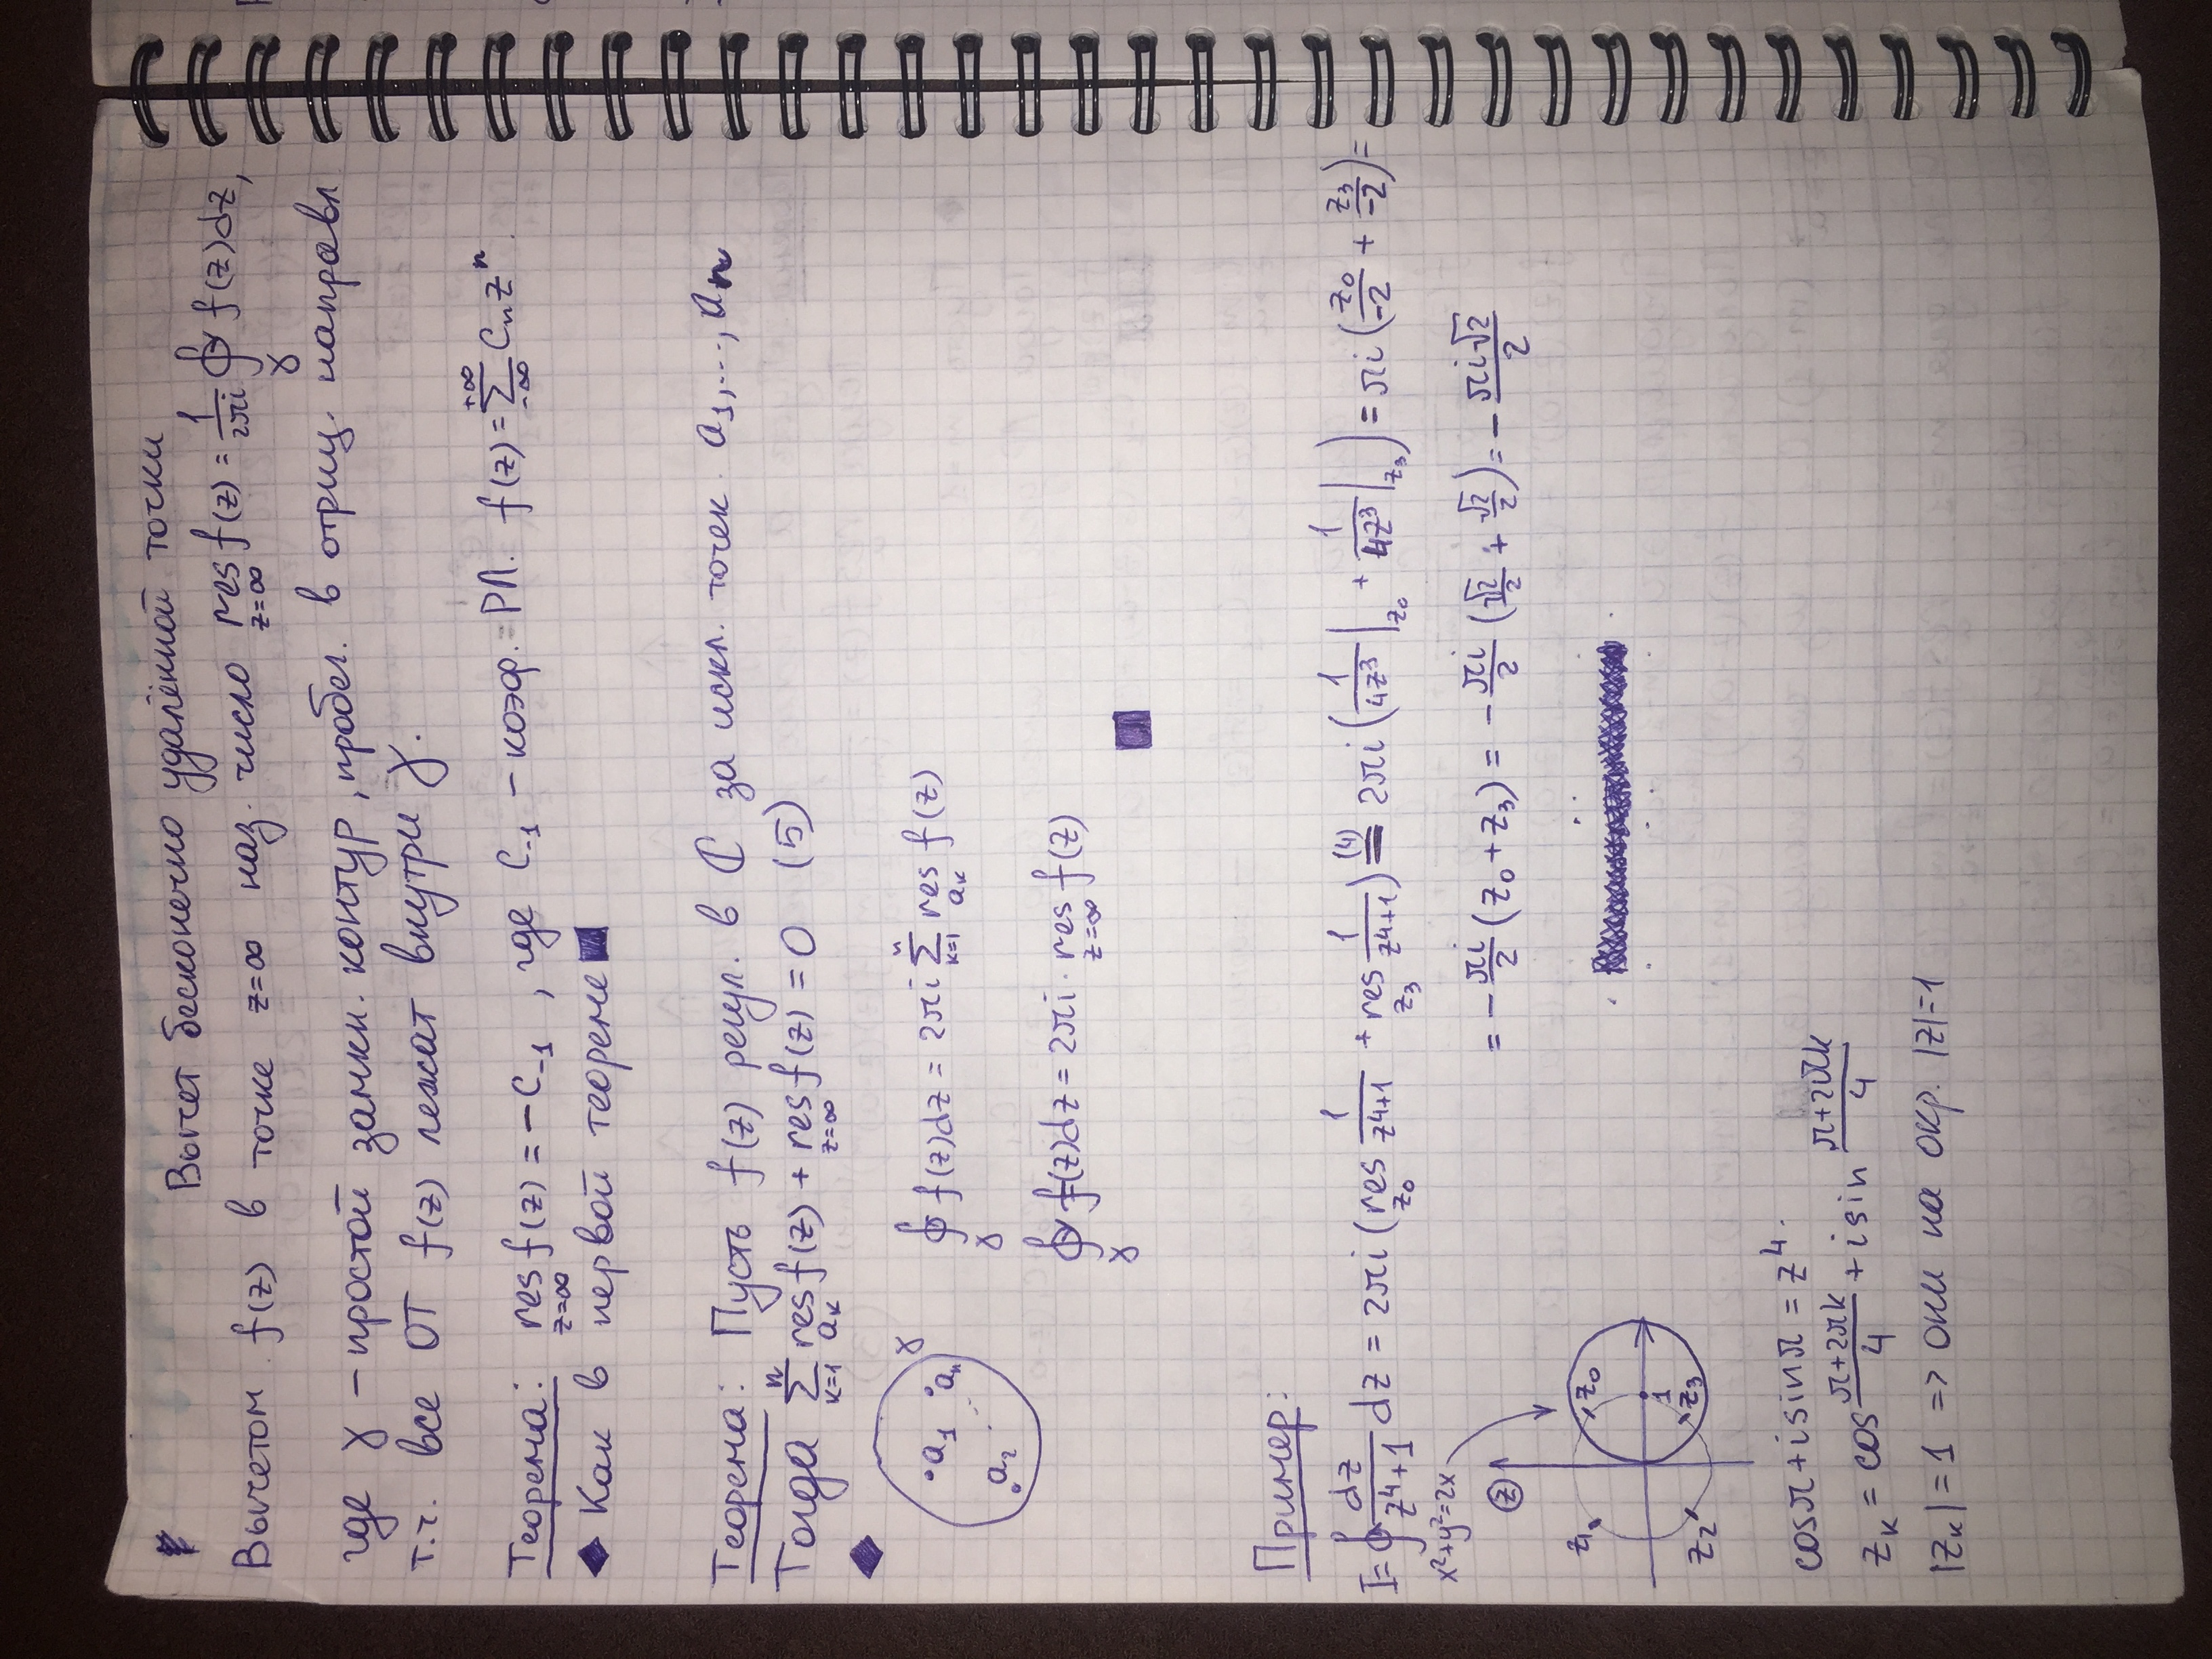 Вычет бесконечно удалённой точки
Вычетом f(z) в точке z=∞ наз. число res_{z=∞} f(z) = 1/(2πi) ∮_γ f(z)dz,
где γ – простой замкн. контур, пробег. в отриц. направл
т.ч. все ОТ f(z) лежат внутри γ.
Теорема: res_{z=∞} f(z) = -C_{-1}, где C_{-1} – коэф. РЛ. f(z) = ∑_{-∞}^{+∞} C_n z^n.
◆ Как в первой теореме ■
Теорема: Пусть f(z) регул. в ℂ за искл. точек a_1,...,a_n
Тогда ∑_{k=1}^{n} res_{a_k} f(z) + res_{z=∞} f(z) = 0 (5)
◆
γ
a_1 a_n
a_2
∮_γ f(z)dz = 2πi ∑_{k=1}^{n} res_{a_k} f(z)
∮_γ f(z)dz = 2πi · res_{z=∞} f(z)
■
Пример:
I = ∮ dz/(z^4+1) dz = 2πi (res_{z_0} 1/(z^4+1) + res_{z_3} 1/(z^4+1)) =^{(4)} 2πi (1/(4z^3)|_{z_0} + 1/(4z^3)|_{z_3}) = πi (z_0/-2 + z_3/-2) =
x²+y²=2x
= - πi/2 (z_0 + z_3) = - πi/2 (√2/2 + √2/2) = - πi√2/2
z
z_1 z_0
1
z_2 z_3
cosπ + i sinπ = z^4.
z_k = cos (π+2πk)/4 + i sin (π+2πk)/4
|z_k| = 1 => они на окр. |z|=1